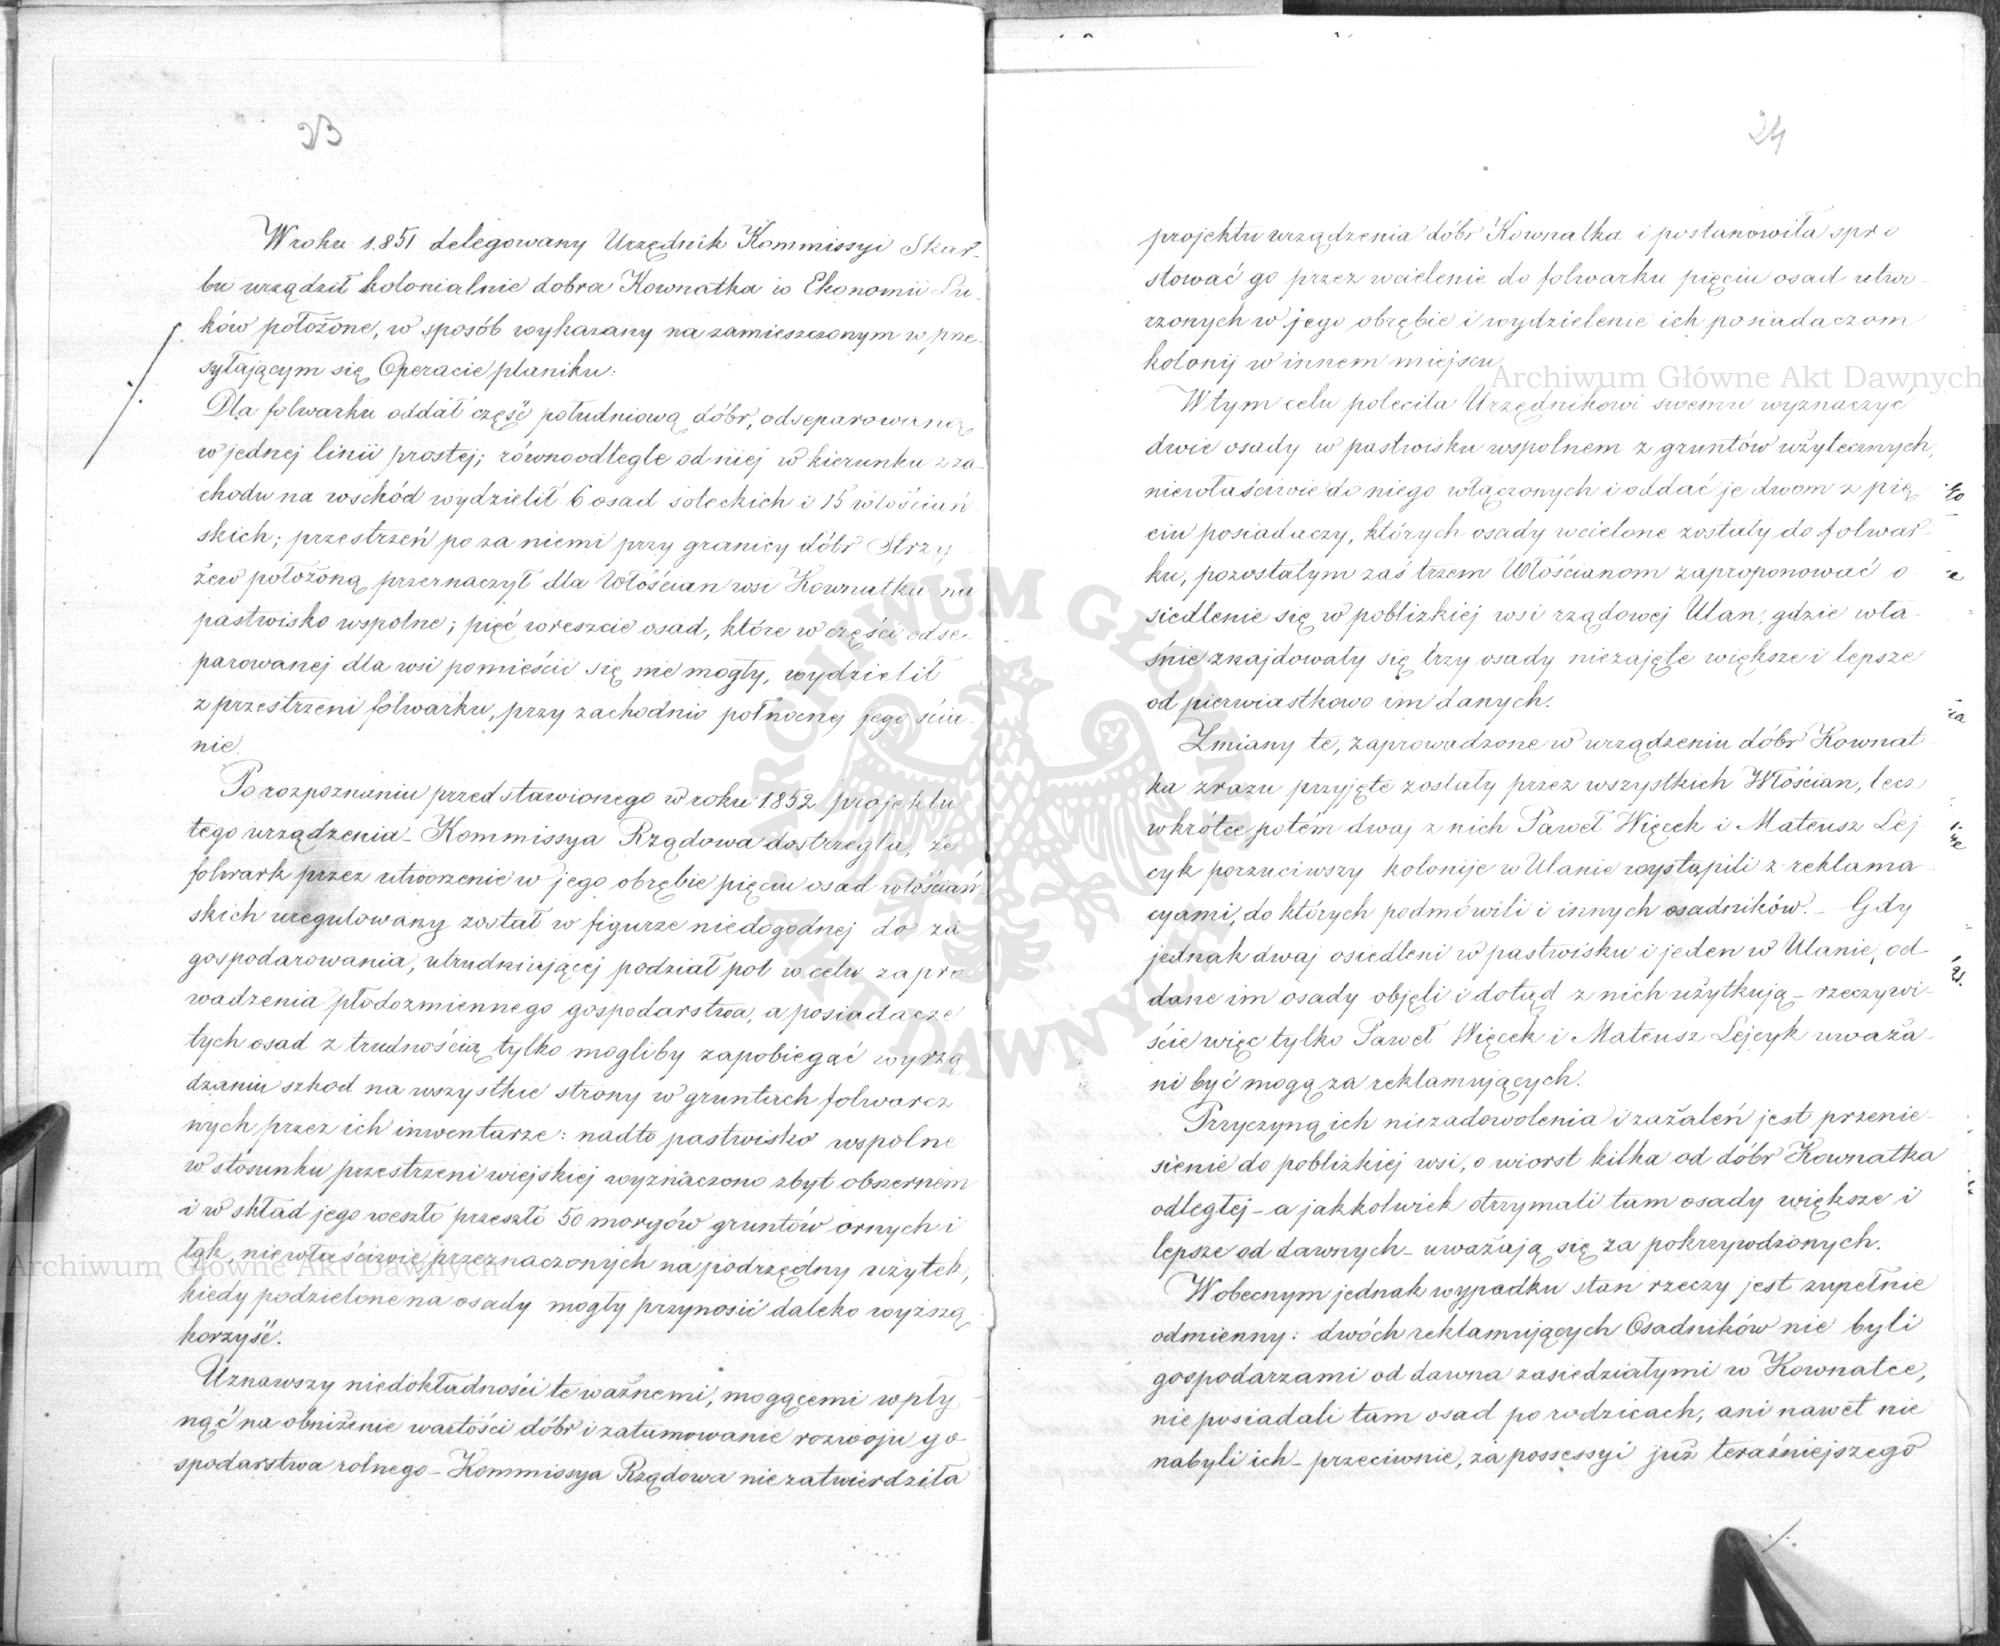 23
W roku 1851 delegowany Urzędnik Kommissyi Skar-
bu urządził kolonialnie dobra Kownatka w Ekonomii Łu-
ków położone, w sposób wykazany na zamieszczonym w prze-
syłającym się Operacie planiku:
Dla folwarku oddał część południową dóbr, odseparowaną
w jednej linii prostej; równoodlegle od niej w kierunku z za-
chodu na wschód wydzielił 6 osad sołeckich i 15 włościań
skich; przestrzeń po za niemi przy granicy dóbr Strzy
żew położoną przeznaczył dla Włościan wsi Kownatka na
pastwisko wspolne; pięć wreszcie osad, które w części odse-
parowanej dla wsi pomieścić się nie mogły, wydzielił
z przestrzeni folwarku, przy zachodnio północnej jego ścia-
nie.
Po rozpoznaniu przedstawionego w roku 1852 projektu
tego urządzenia – Kommissya Rządowa dostrzegła, że
folwark przez utworzenie w jego obrębie pięciu osad włościań
skich uregulowany został w figurze niedogodnej do za
gospodarowania, utrudniającej podział pol w celu zapro
wadzenia płodozmiennego gospodarstwa, a posiadacze
tych osad z trudnością tylko mogliby zapobiegać wyrzą
dzaniu szkod na wszystkie strony w gruntach folwarcz
nych przez ich inwentarze: nadto pastwisko wspolne
w stosunku przestrzeni wiejskiej wyznaczono zbyt obszernem
i w skład jego weszło przeszło 50 morgów gruntów ornych i
łąk, niewłaściwie przeznaczonych na podrzędny użytek,
kiedy podzielone na osady mogły przynosić daleko wyższą
korzyść.
Uznawszy niedokładności te ważnemi, mogącemi wpły
nąć na obniżenie wartości dóbr i zatamowanie rozwoju go-
spodarstwa rolnego – Kommissya Rządowa nie zatwierdziła
24
projektu urządzenia dóbr Kownatka i postanowiła spro
stować go przez wcielenie do folwarku pięciu osad utwo-
rzonych w jego obrębie i wydzielenie ich posiadaczom
kolonij w innem miejscu.
W tym celu poleciła Urzędnikowi swemu wyznaczyć
dwie osady w pastwisku wspolnem z gruntów użytecznych,
niewłaściwie do niego włączonych i oddać je dwom z pię
ciu posiadaczy, których osady wcielone zostały do folwar-
ku, pozostałym zaś trzem Włościanom zaproponować o
siedlenie się w poblizkiej wsi rządowej Ulan, gdzie wła-
śnie znajdowały się trzy osady niezajęte większe i lepsze
od pierwiastkowo im danych.
Zmiany te, zaprowadzone w urządzeniu dóbr Kownat
ka zrazu przyjęte zostały przez wszystkich Włościan, lecz
wkrótce potém dwaj z nich Paweł Więcek i Mateusz Lej
cyk porzuciwszy kolonije w Ulanie wystąpili z reklama-
cyami, do których podmówili i innych osadników. – Gdy
jednak dwaj osiedleni w pastwisku i jeden w Ulanie, od-
dane im osady objęli i dotąd z nich użytkują – rzeczywi-
ście więc tylko Paweł Więcek i Mateusz Lejcyk uważa-
ni być mogą za reklamujących.
Przyczyną ich niezadowolenia i zażaleń jest przenie-
sienie do poblizkiej wsi, o wiorst kilka od dóbr Kownatka
odległej – a jakkolwiek otrzymali tam osady większe i
lepsze od dawnych – uważają się za pokrzywdzonych.
W obecnym jednak wypadku stan rzeczy jest zupełnie
odmienny: dwóch reklamujących Osadników nie byli
gospodarzami od dawna zasiedziałymi w Kownatce,
nie posiadali tam osad po rodzicach, ani nawet nie
nabyli ich – przeciwnie, za possessyi już teraźniejszego
Archiwum Główne Akt Dawnych
Archiwum Główne Akt Dawnych
ARCHIWUM GŁÓWNE AKT DAWNYCH